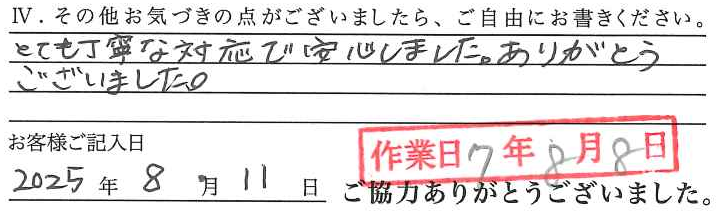 Ⅳ．その他お気づきの点がございましたら、ご自由にお書きください。
とても丁寧な対応で安心しました。ありがとう
ございました。
お客様ご記入日
作業日7年8月8日
2025年8月11日
ご協力ありがとうございました。